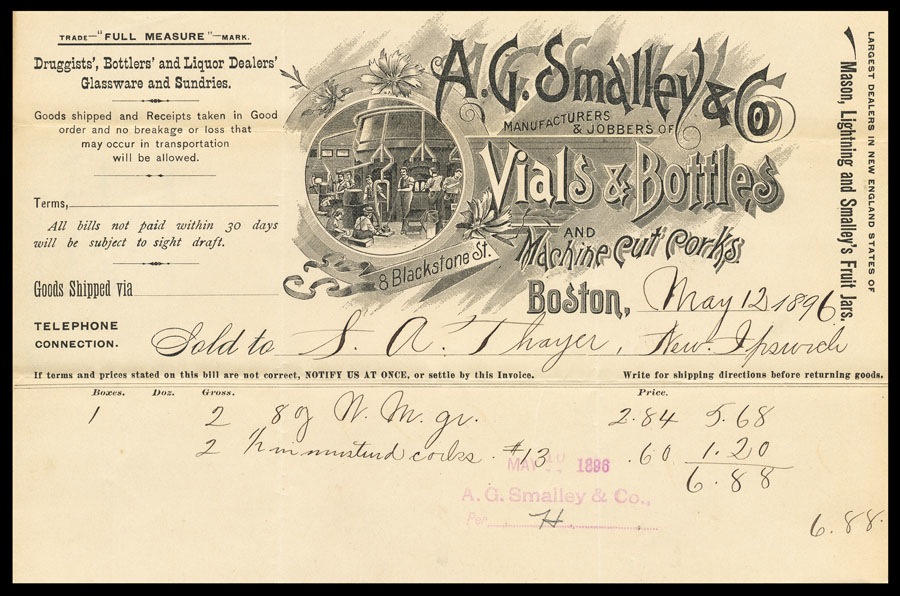 TRADE—"FULL MEASURE"—MARK.
Druggists', Bottlers' and Liquor Dealers'
Glassware and Sundries.
Goods shipped and Receipts taken in Good
order and no breakage or loss that
may occur in transportation
will be allowed.
Terms,
All bills not paid within 30 days
will be subject to sight draft.
Goods Shipped via
TELEPHONE
CONNECTION.
A. G. Smalley & Co
MANUFACTURERS
& JOBBERS OF
Vials & Bottles
AND
Machine Cut Corks.
8 Blackstone St.
Boston, May 12 1896
LARGEST DEALERS IN NEW ENGLAND STATES OF
Mason, Lightning and Smalley's Fruit Jars.
Sold to S. A. Thayer, New Ipswich
If terms and prices stated on this bill are not correct, NOTIFY US AT ONCE, or settle by this Invoice. Write for shipping directions before returning goods.
Boxes. Doz. Gross. Price.
1 2 8 oz W. M. gr. 2.84 5.68
2 1/2 in mustard corks. #13 .60 1.20
6.88
MAY 1896
A. G. Smalley & Co.,
Per H.
6.88.